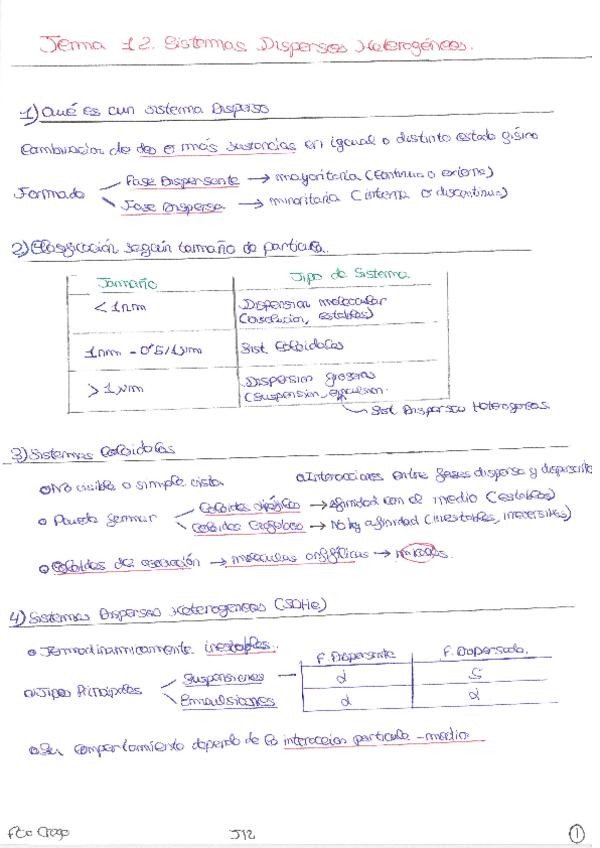 Tema 12. Sistemas Dispersos Heterogéneos.
1) Qué es un sistema Disperso
Combinación de dos o más sustancias en igual o distinto estado físico
Formado
Fase Dispersante → mayoritaria (continua o externa)
Fase Dispersa → minoritaria (interna o discontinua)
2) Clasificación según tamaño de partícula.
Tamaño Tipo de Sistema
< 1nm Dispersion molecular
(Disolucion, estables)
1nm - 0'5/1μm Sist Coloidales
> 1μm Dispersion groseras
(suspension, emulsion.
Sist Dispersos Heterogeneos.
3) Sistemas Coloidales
No visible a simple vista Interacciones entre fases dispersa y dispersante
Puede formar
Coloides liofilico → afinidad con el medio (estables)
Coloides Liofobico → No hay afinidad (inestables, irreversibles)
Coloides de asociación → moleculas anfifilicas → micelas.
4) Sistemas Dispersos Heterogeneos (SDHe)
Termodinamicamente inestables.
F. Dispersante F. Dispersada.
Tipos Principales
Suspensiones — d S
Emulsiones d d
Su comportamiento depende de la interaccion particula - medio
Fco Crago J12 1